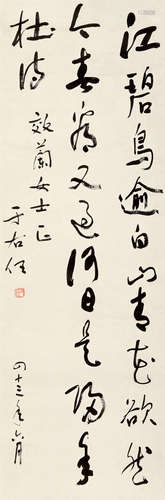 江碧鳥逾白山青花欲然
今春看又過何日是歸年
杜詩
效蘭女士正
于右任
四十三年六月